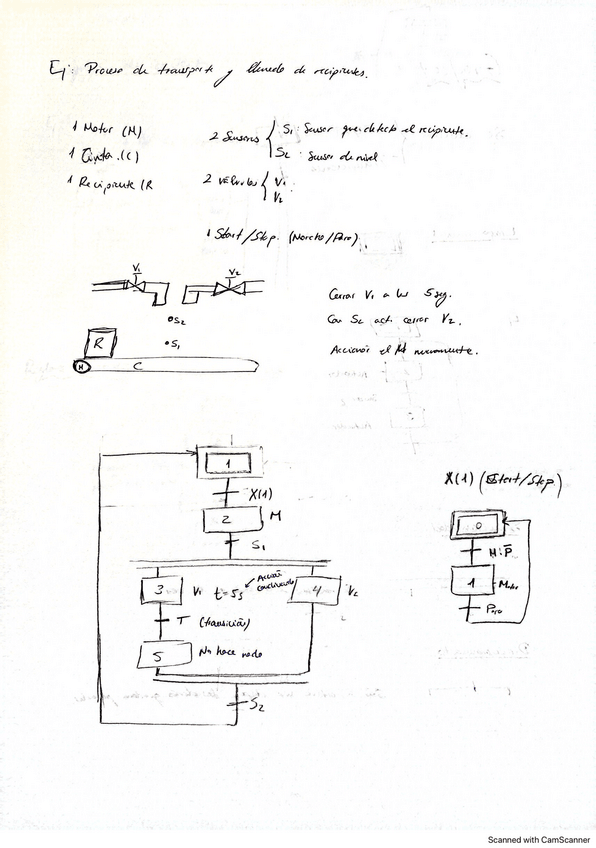 Ej: Proceso de transporte y llenado de recipientes.
1 Motor (M)
1 Cinta (C)
1 Recipiente (R
2 Sensores
S1: Sensor que detecta el recipiente.
S2: Sensor de nivel
2 válvulas
V1
V2
1 Start/Stop. (Marcha/Paro)
V1
V2
S2
R
S1
M
C
Cerrar V1 a los 5 seg.
Con S2 act. cerrar V2.
Accionar el M nuevamente.
1
X(1)
2 M
S1
3 V1 t=5s Acción condicionada
4 V2
T (transición)
5 No hace nada
S2
X(1) (Start/Stop)
0
M·P̅
1 Motor
Paro
Scanned with CamScanner